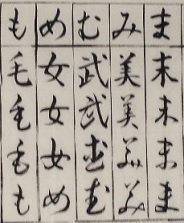 ま末末末ま
み美美美み
む武武武む
め女女女め
も毛毛毛も